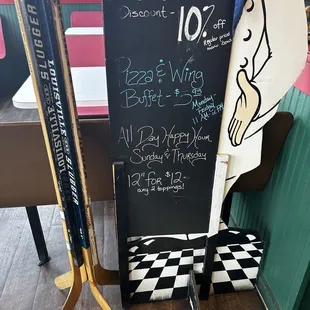 Discount - 10% off
Regular price
Items
Pizza & Wing
Buffet - $
Monday -
All Day Happy Hour
Sunday & Thursday
12" for $12-
any 2 toppings!
SLUGGER
LOUISVILLE
LOUISVILLE SLUGGER